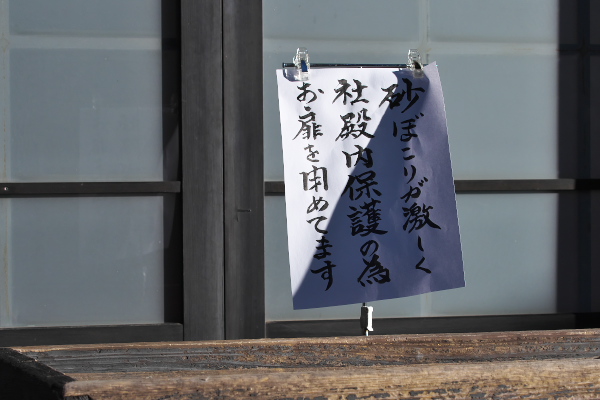 砂ぼこりが激しく
社殿内保護の為
お扉を閉めてます